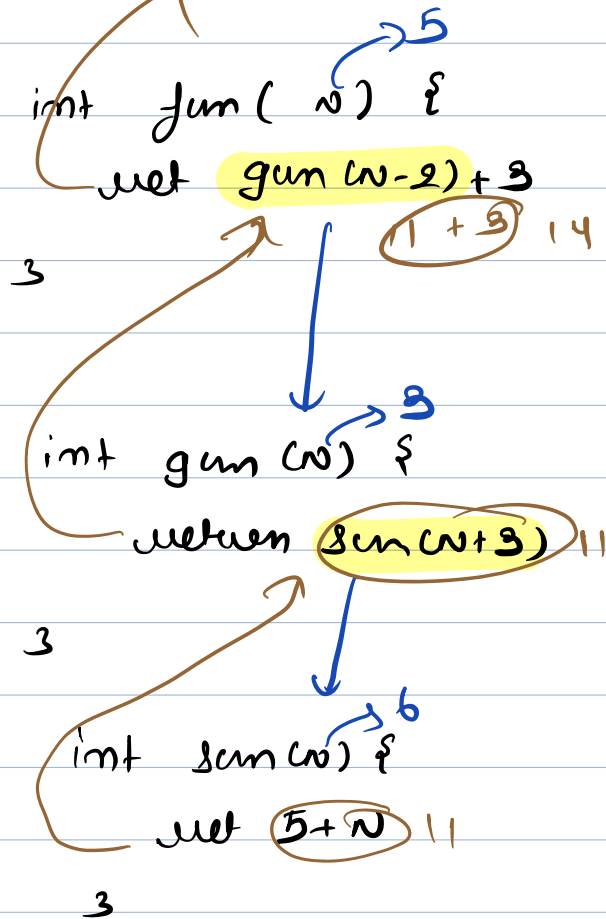 5
int fun( N ) {
ret gun (N-2) + 3
11 + 3 14
}
3
int gun (N) {
return sun (N+3) 11
}
6
int sun (N) {
ret 5+N 11
}